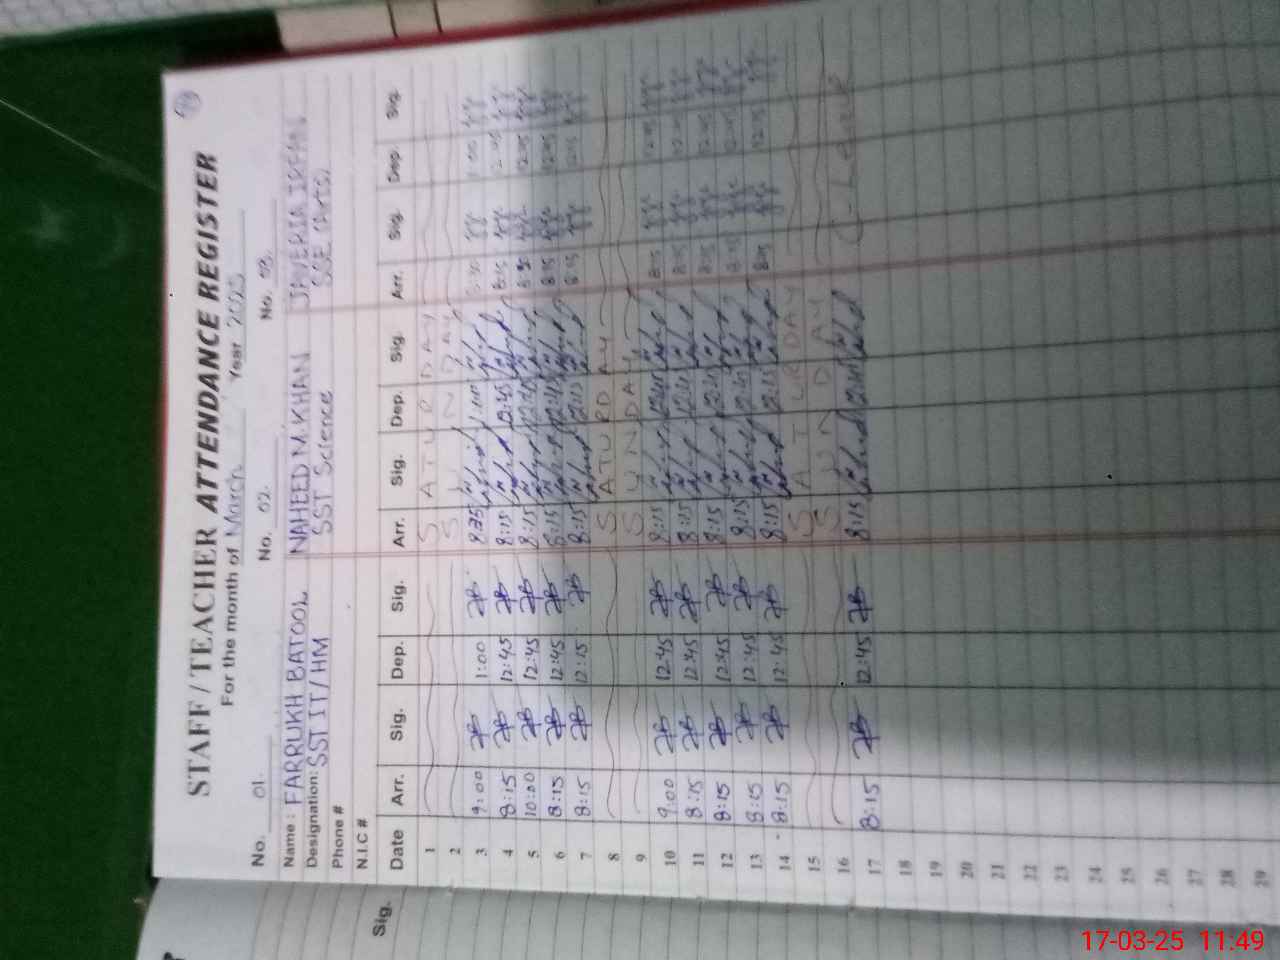 STAFF / TEACHER ATTENDANCE REGISTER
For the month of March Year 2025
No. 01. No. 02. No. 03.
Name : FARRUKH BATOOL NAHEED M. KHAN JAVERIA IRFAN
Designation: SST IT/HM SST Science SSE (Arts)
Phone #
N.I.C #
Date Arr. Sig. Dep. Sig. Arr. Sig. Dep. Sig. Arr. Sig. Dep. Sig.
1 SATURDAY
2 SUNDAY
3 9:00 1:00 8:35 1:00
4 8:15 12:45 8:15 12:45 8:15
5 10:00 12:45 8:15 12:45 12:45
6 8:15 12:45 8:15 12:45 8:15 12:45
7 8:15 12:15 8:15 12:15 8:15 12:15
8 SATURDAY
9 SUNDAY
10 9:00 12:45 8:15 12:45 8:15 12:45
11 8:15 12:45 8:15 12:45 8:15 12:45
12 8:15 12:45 8:15 12:45 8:15 12:45
13 8:15 12:45 8:15 12:45 8:15 12:45
14 8:15 12:45 8:15 12:15 8:15 12:15
15 SATURDAY
16 SUNDAY
17 8:15 12:45 8:15 12:45 C-Leave
18
19
20
21
22
23
24
25
26
27
28
29
Sig.
17-03-25 11:49